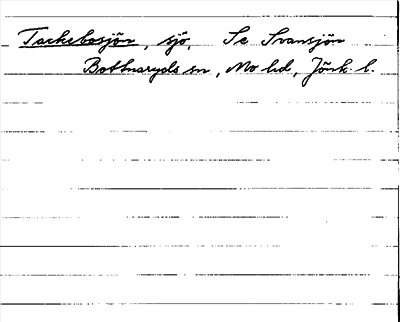 Tackebosjön, sjö, Se Svansjön
Bottnaryds sn, Mo hd, Jönk. l.